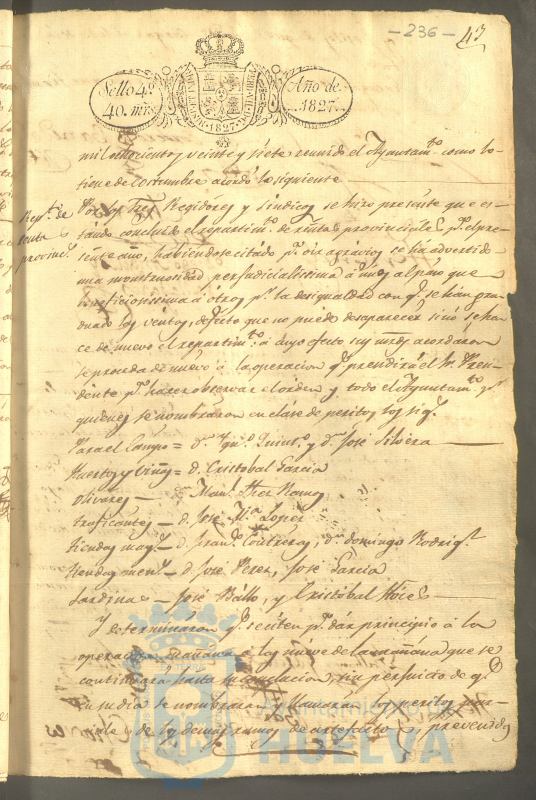 - 236 - 47
Sello 4º
40. mrs
Año de
1827.
HISPANIAR
1827
mil ochocientos veinte y siete reunido el Ayuntamto. como lo
tiene de costumbre acordó lo siguiente
Repto. de
renta
provincs.
Por los Sres Regidores y Sindicos se hizo presente que es-
tando concluido el repartimto. de rentas provinciales pa. el pre-
sente año, habiendose citado pa. oir agrávios se ha advertido
una monstruosidad perjudicialisima á unos al paso que
beneficiosisima á otros pr. la desigualdad con qe. se han gra-
duado los vientos, defecto que no puede desaparecer sinó se ha-
ce de nuevo el repartimto. á cuyo efecto sus mrds acordaron
se proceda de nuevo á la operacion qe. precidirá el Sr. Presi-
dente pa. hazer observar el órden y todo el Ayuntamto. pr.
quienes se nombraron en clase de peritos los sigtes.
Para el Campo = dn. Ygno. Quinto. y dn. José Silvera
Huertos y Viñas = d. Cristobal Garcia
Olivares — Manl. Ramos
traficantes — d. José Ma. Lopez
tiendas mays. — d. Franco. Contreras, dn. domingo Rodrigz.
tiendas mens. — d. José Perez, José Garcia
Sardina — José Bállo, y Cristóbal
Y determinaron qe. se citen pa. dár principio á la
operacion mañana á las nueve de la mañana que se
continuará hasta su conclucion, sin perjuicio de qe.
en su dia se nombraran y llamaran los peritos par-
ciales de los demas ramos de artefactos, prevenidos
Ayuntamiento de
HUELVA